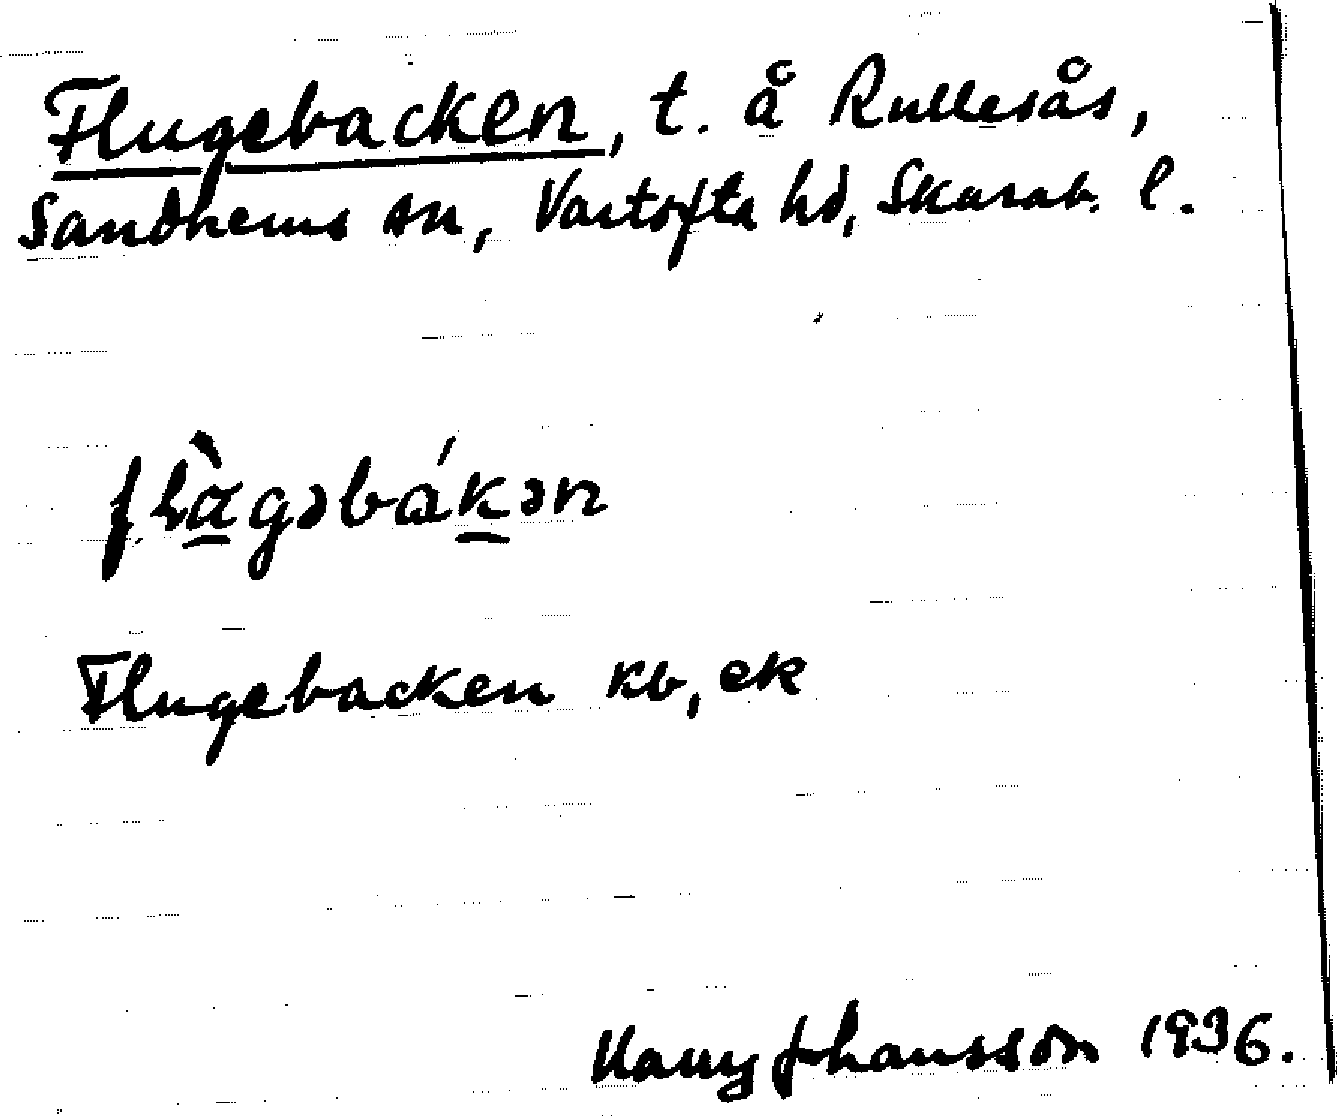 Flugebacken, t. å Rullesås,
Sandhems sn, Vartofta hd, Skarab. l.
flɑ̀gəbákən
Flugebacken kb, ek
Harry Johansson 1936.